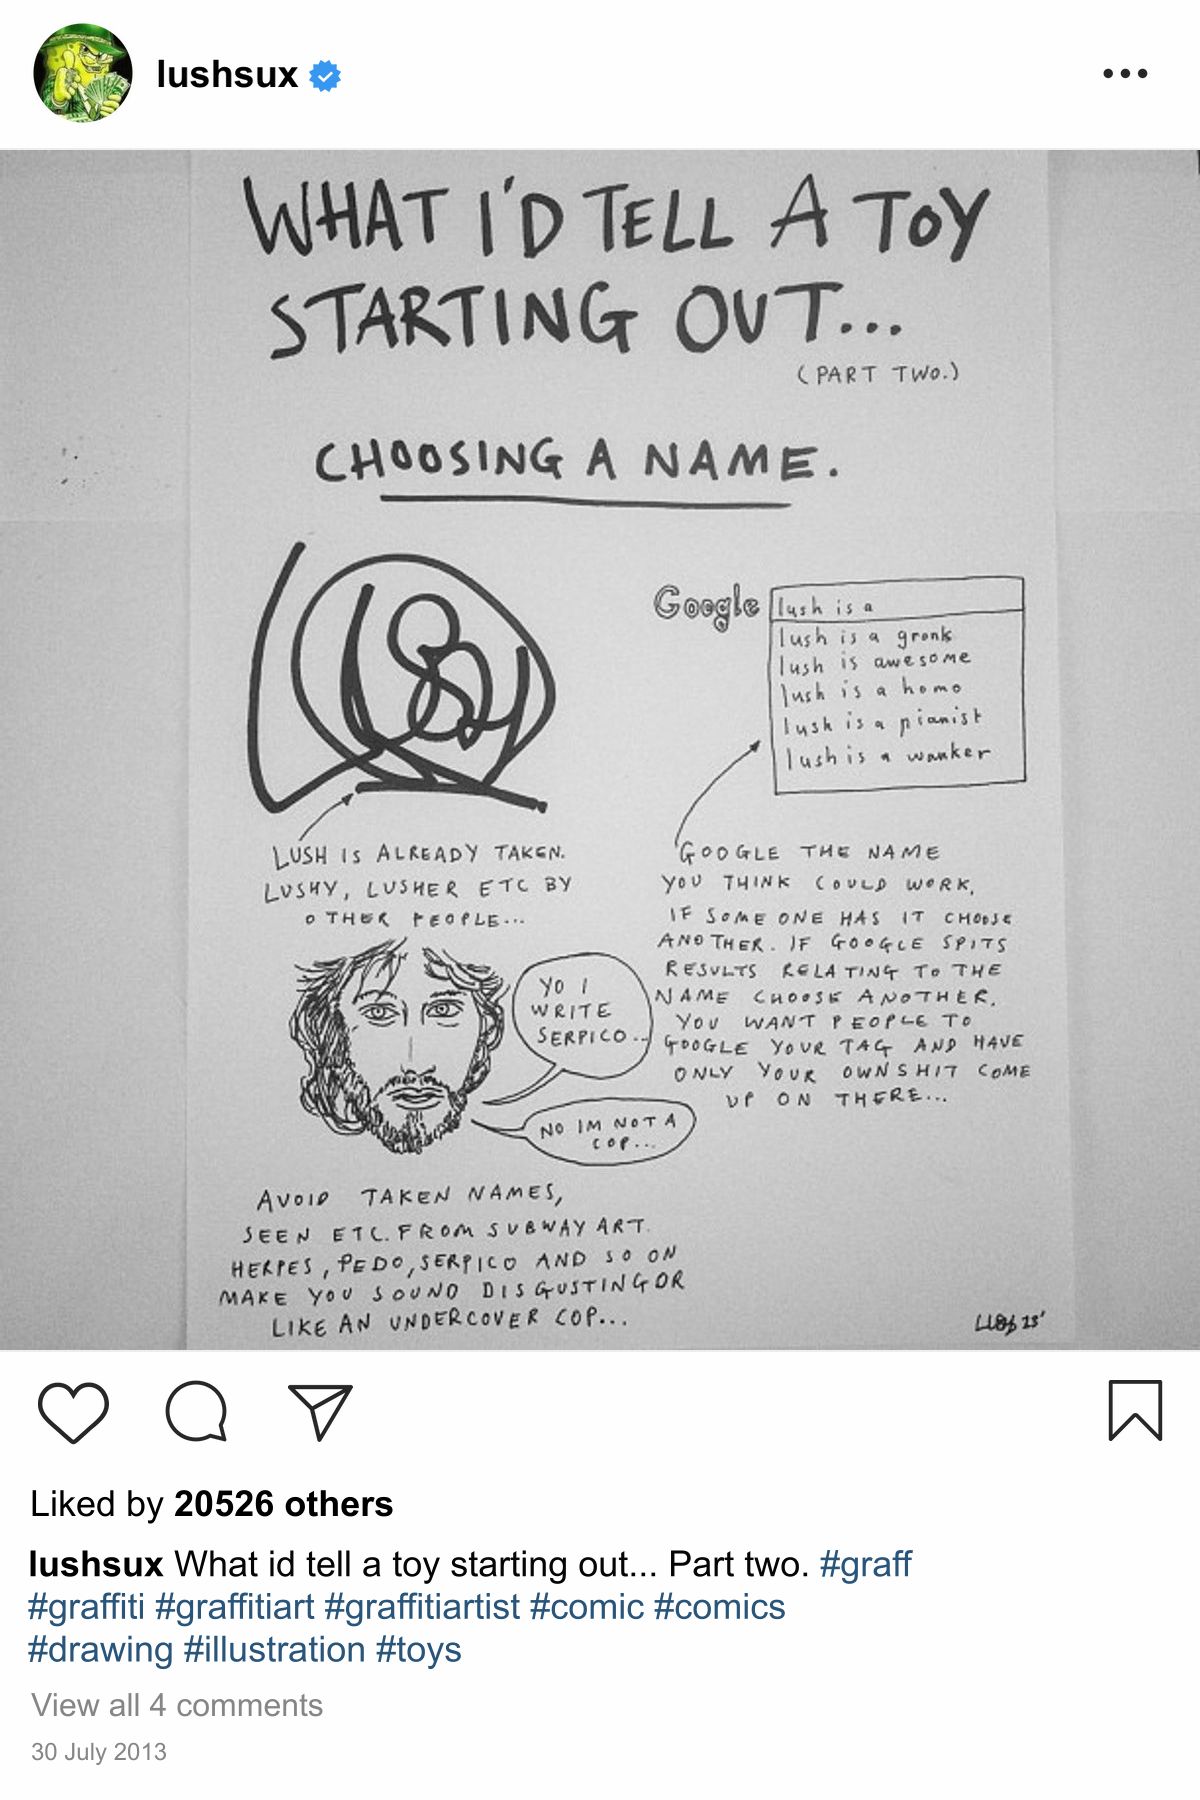 lushsux
WHAT I'D TELL A TOY
STARTING OUT...
(PART TWO.)
CHOOSING A NAME.
Google
lush is a
lush is a gronk
lush is awesome
lush is a homo
lush is a pianist
lush is a wanker
LUSH IS ALREADY TAKEN.
LUSHY, LUSHER ETC BY
OTHER PEOPLE...
GOOGLE THE NAME
YOU THINK COULD WORK,
IF SOMEONE HAS IT CHOOSE
ANOTHER. IF GOOGLE SPITS
RESULTS RELATING TO THE
NAME CHOOSE ANOTHER.
YOU WANT PEOPLE TO
GOOGLE YOUR TAG AND HAVE
ONLY YOUR OWN SHIT COME
UP ON THERE...
YO I
WRITE
SERPICO...
NO IM NOT A
COP...
AVOID TAKEN NAMES,
SEEN ETC. FROM SUBWAY ART.
HERPES, PEDO, SERPICO AND SO ON
MAKE YOU SOUND DISGUSTING OR
LIKE AN UNDERCOVER COP...
13'
Liked by 20526 others
lushsux What id tell a toy starting out... Part two. #graff
#graffiti #graffitiart #graffitiartist #comic #comics
#drawing #illustration #toys
View all 4 comments
30 July 2013